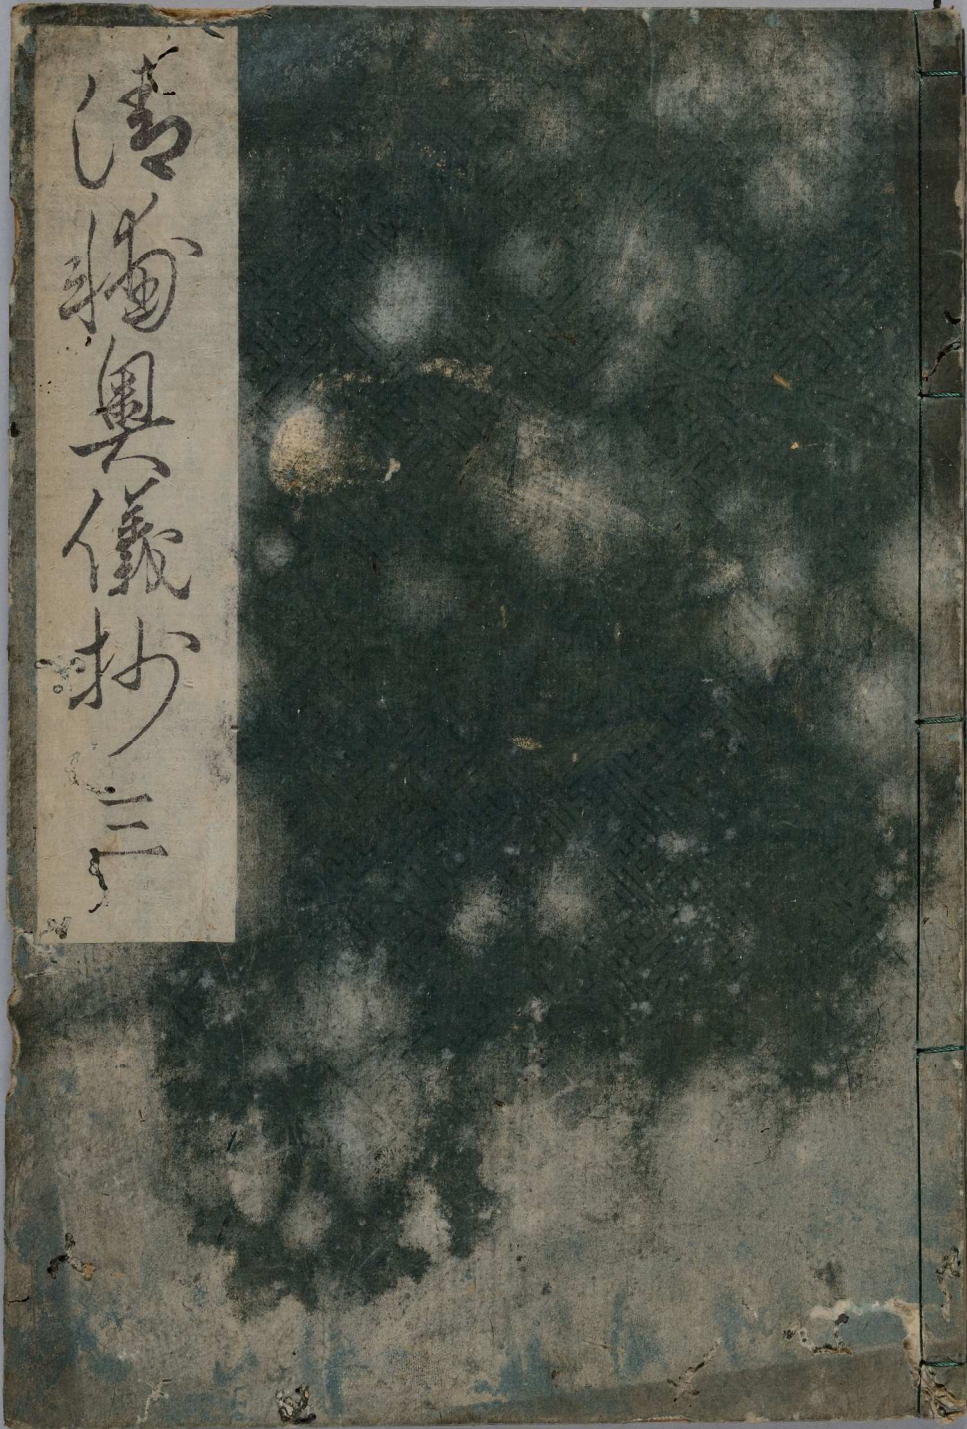 清輔奥儀抄 三